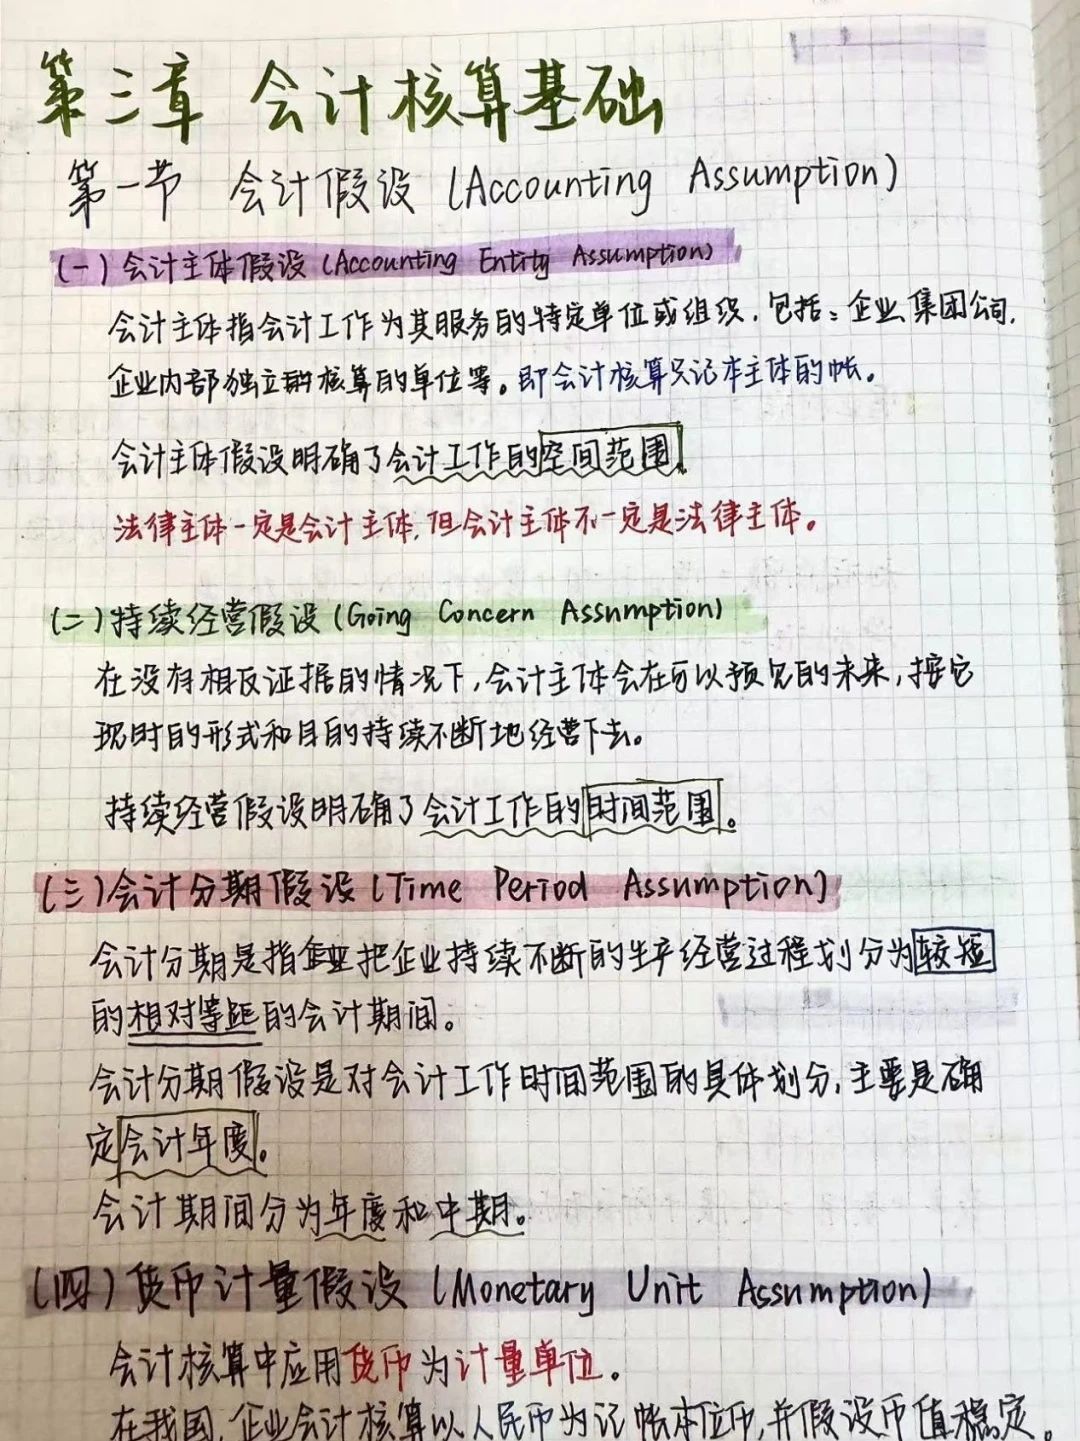 第三章 会计核算基础
第一节 会计假设 (Accounting Assumption)
(一)会计主体假设 (Accounting Entity Assumption)
会计主体指会计工作为其服务的特定单位或组织,包括:企业、集团公司,
企业内部独立的核算的单位等。即会计核算只记本主体的帐。
会计主体假设明确了会计工作的空间范围
法律主体一定是会计主体,但会计主体不一定是法律主体。
(二)持续经营假设 (Going Concern Assumption)
在没有相反证据的情况下,会计主体会在可以预见的未来,按它
现时的形式和目的持续不断地经营下去。
持续经营假设明确了会计工作的时间范围。
(三)会计分期假设 (Time Period Assumption)
会计分期是指企业把企业持续不断的生产经营过程划分为较短
的相对等距的会计期间。
会计分期假设是对会计工作时间范围的具体划分,主要是确
定会计年度。
会计期间分为年度和中期。
(四)货币计量假设 (Monetary Unit Assumption)
会计核算中应用货币为计量单位。
在我国,企业会计核算以人民币为记帐本位币,并假设币值稳定。